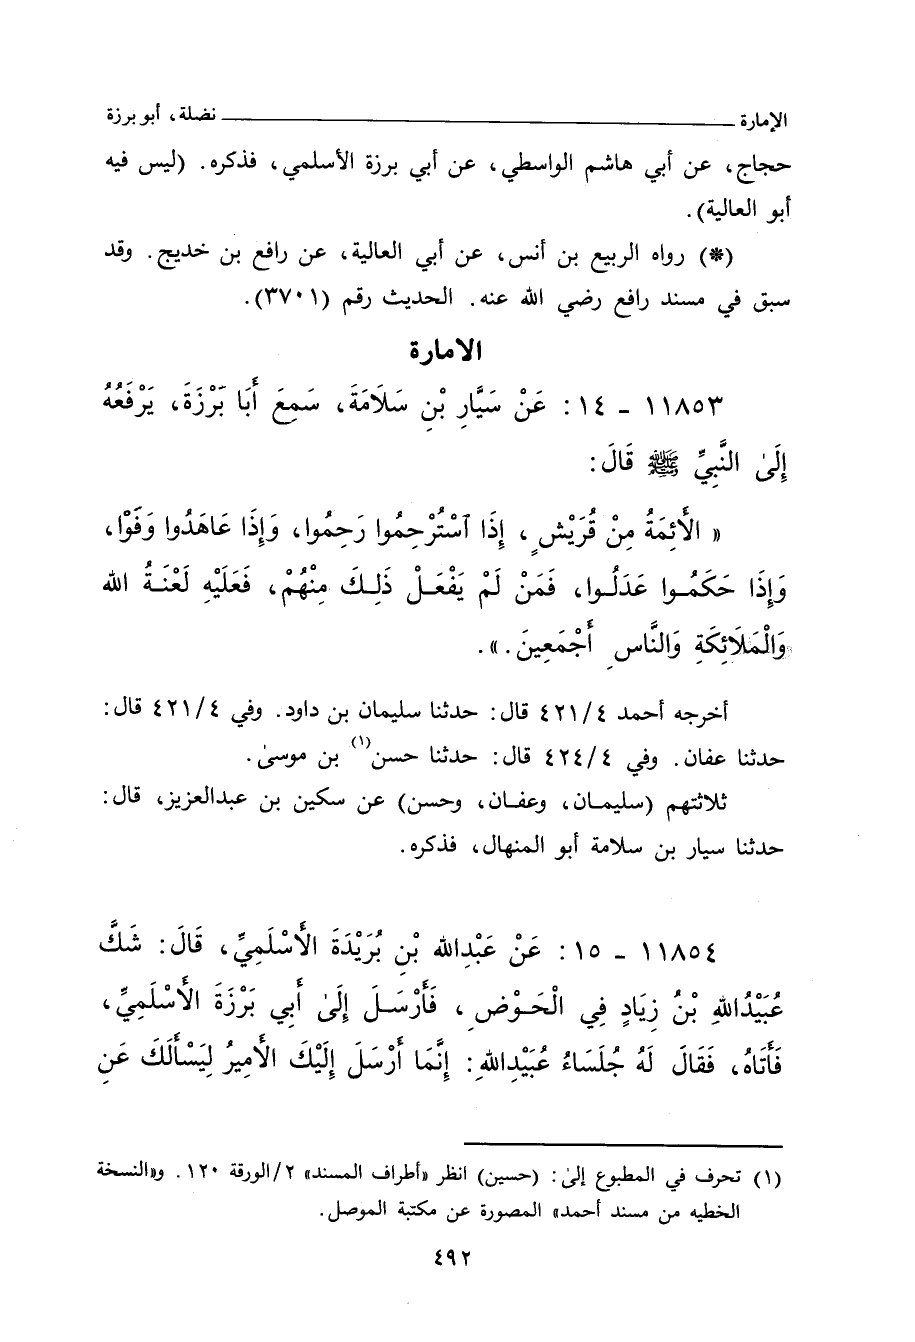 الإمارة ــــــــــــــــــــ نضلة، أبو برزة
حجاج، عن أبي هاشم الواسطي، عن أبي برزة الأسلمي، فذكره. (ليس فيه
أبو العالية).
(*) رواه الربيع بن أنس، عن أبي العالية، عن رافع بن خديج. وقد
سبق في مسند رافع رضي الله عنه. الحديث رقم (٣٧٠١).
الامارة
١١٨٥٣ - ١٤: عَنْ سَيَّارِ بْنِ سَلَامَةَ، سَمِعَ أَبَا بَرْزَةَ، يَرْفَعُهُ
إِلَىٰ النَّبِيِّ ﷺ قَالَ:
« الْأَئِمَةُ مِنْ قُرَيْشٍ، إِذَا ٱسْتُرْحِمُوا رَحِمُوا، وَإِذَا عَاهَدُوا وَفَوْا،
وَإِذَا حَكَمُوا عَدَلُوا، فَمَنْ لَمْ يَفْعَلْ ذَلِكَ مِنْهُمْ، فَعَلَيْهِ لَعْنَةُ الله
وَالْمَلَائِكَةِ وَالنَّاسِ أَجْمَعِينَ.».
أخرجه أحمد ٤٢١/٤ قال: حدثنا سليمان بن داود. وفي ٤٢١/٤ قال:
حدثنا عفان. وفي ٤٢٤/٤ قال: حدثنا حسن(١) بن موسىٰ.
ثلاثتهم (سليمان، وعفان، وحسن) عن سكين بن عبدالعزيز، قال:
حدثنا سيار بن سلامة أبو المنهال، فذكره.
١١٨٥٤ - ١٥: عَنْ عَبْدِالله بْنِ بُرَيْدَةَ الْأَسْلَمِيِّ، قَالَ: شَكَّ
عُبَيْدُاللهِ بْنُ زِيَادٍ فِي الْحَوْضِ، فَأَرْسَلَ إِلَىٰ أَبِي بَرْزَةَ الْأَسْلَمِيِّ،
فَأَتَاهُ، فَقَالَ لَهُ جُلَسَاءُ عُبَيْدِاللهِ: إِنَّمَا أَرْسَلَ إِلَيْكَ الْأَمِيرُ لِيَسْأَلَكَ عَنِ
(١) تحرف في المطبوع إلىٰ: (حسين) انظر «أطراف المسند» ٢/الورقة ١٢٠. و«النسخة
الخطيه من مسند أحمد» المصورة عن مكتبة الموصل.
٤٩٢